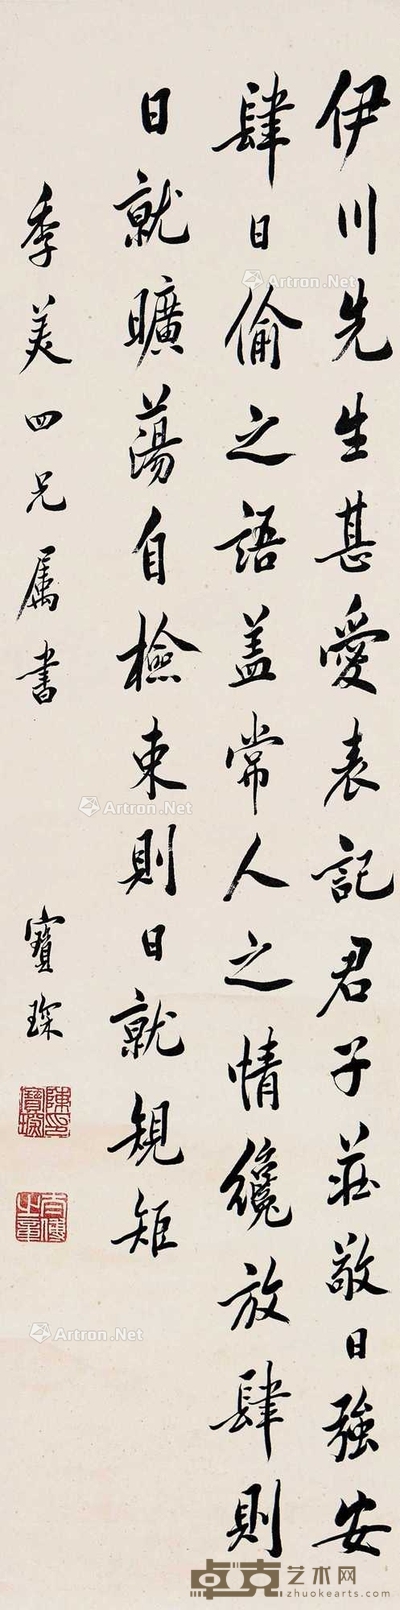 伊川先生甚愛表記君子莊敬日強安
肆日偷之語蓋常人之情纔放肆則
日就曠蕩自檢束則日就規矩
季美四兄屬書
寶琛
陳印寶琛
Artron.Net
Artron.Net
Artron.Net
Artron.Net
卓克艺术网
zhuokearts.com